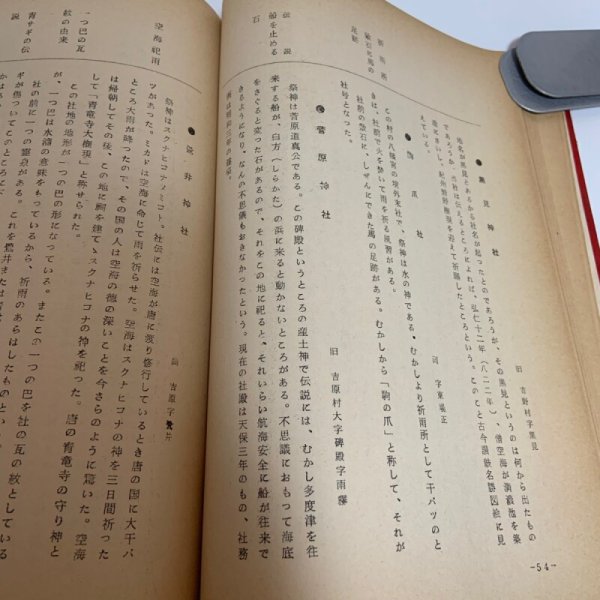 ●黒見神社
旧 吉野村字黒見
地名が黒見とあるから社名が起ったとのであろうが、その黒見というのは何から出たもの
であろうか。当社は伝えるところによれば、弘仁十二年(八二二年)、僧空海が満濃池を築
造にさいし、紀州熊野権現を迎えて祈願したところという。このこと古今讃岐名勝図絵に見
えている。
祈雨所
●駒爪社
同 字東塩正
この村の八幡宮の境外末社で、祭神は水の神である。むかしより祈雨所として干バツのと
きは、社前で火を焚いて雨を祈る風習がある。
社前の盤石に、しぜんにできた馬の足跡がある。むかしから「駒の爪」と称して、それが
社号となった。
●菅原神社
旧 吉原村大字碑殿字雨霧
伝説
船を止める
石
祭神は菅原道真公である。この碑殿というところの産土神で伝説には、むかし多度津を往
来する船が、白方(しらかた)の浜に来ると動かないところがある。不思議におもって海底
をさぐると変った石があるので、それをこの地に祀ると、それいらい航海安全に船が往来で
きるようになり、なんの不思議もおきなかったという。現在の社殿は天保三年のもの、社務
所は昭和三年の築造。
●鷺井神社
旧 吉原字鷺井
空海祀雨
祭神はスクナヒコナノミコト。社伝には空海が唐に渡り修行しているとき唐の国に大干バ
ツがあった。ミカドは空海に命じて雨を祈らせた。空海はスクナヒコナの神を三日間祈った
ところ大雨が降ったので、その国の人は空海の徳の深いことを今さらのように驚いた。空海
は帰朝してその後、この地に祠を建てゝスクナヒコナの神を祀った。唐の青竜寺の守り神と
して「青竜寺大権現」と称せられた。
一つ巴の瓦
紋の由来
この社地の地形が一つ巴の形になっている。またこの一つ巴を社の瓦の紋としている
が、一つ巴は水渦の意味をもっているから、祈雨のあらはしたものとい
青サギの伝
説
社の前に一つの霊泉がある。これを鷺井または
ギが傷ついてこのところに
-54-